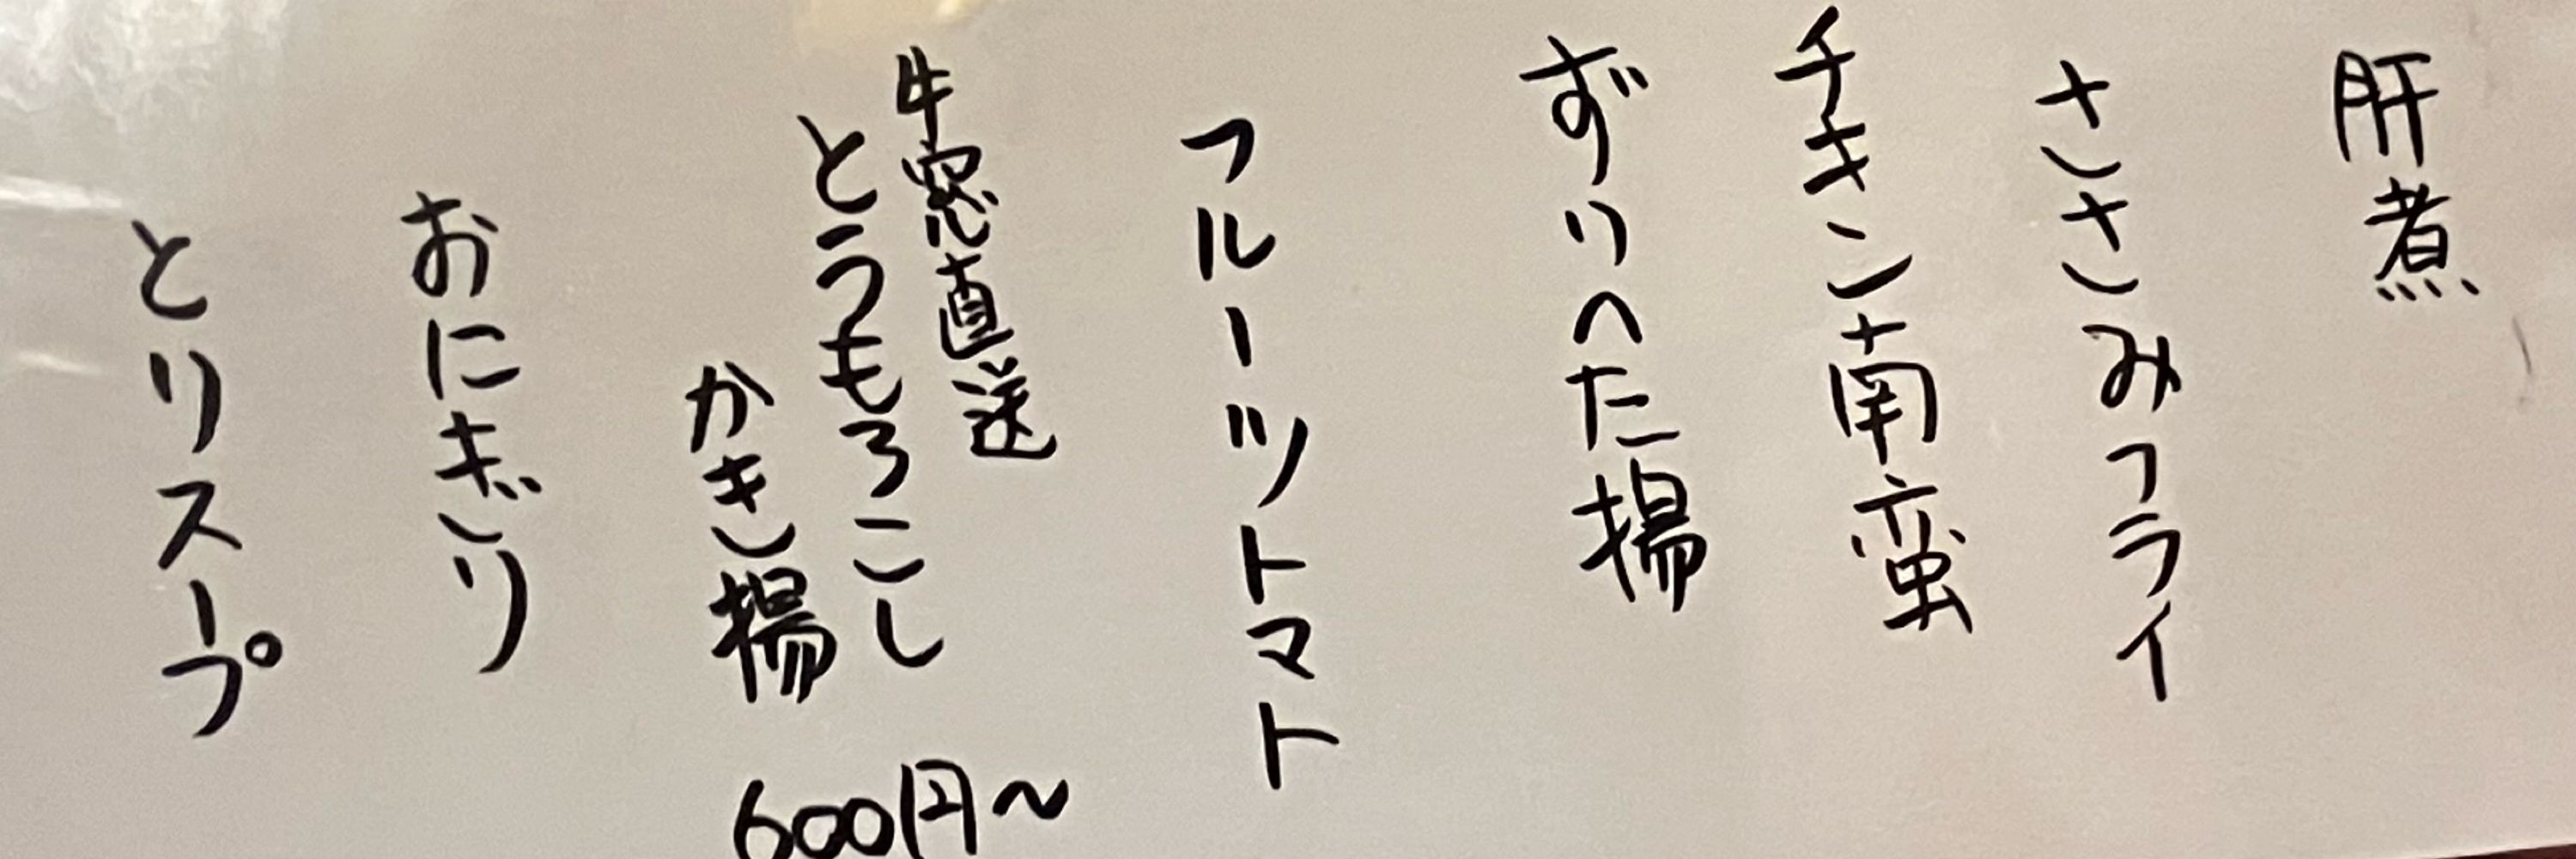 肝煮
ささみフライ
チキン南蛮
ずりへた揚
フルーツトマト
牛窓直送
とうもろこし
かき揚
600円～
おにぎり
とりスープ